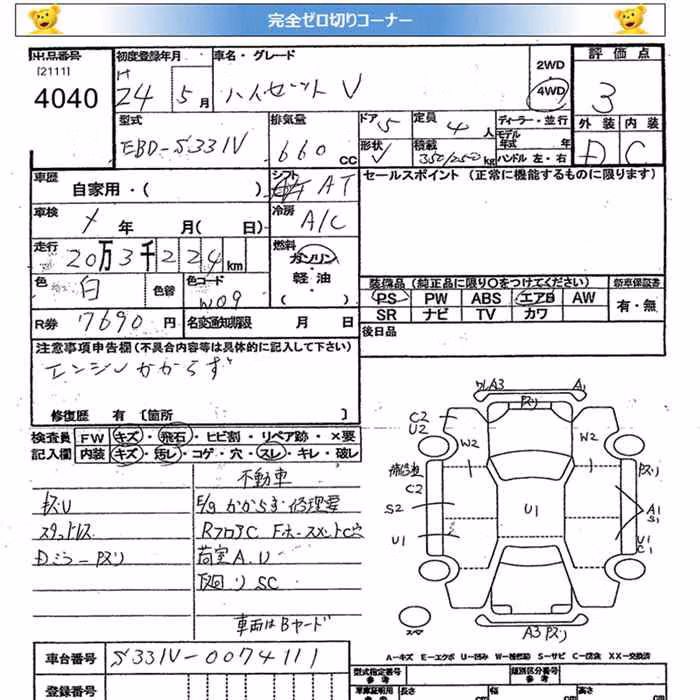 完全ゼロ切りコーナー
出品番号
[2111]
4040
初度登録年月
H
24 5月
車名・グレード
ハイゼット V
2WD
4WD
評価点
3
型式
EBD-S331V
排気量
660 CC
ドア 5
定員 4 人
ディーラー・並行
モデル
年式 年
ハンドル 左・右
形状 V
積載 350/250 kg
外装 内装
D C
車歴
自家用・( )
シフト
AT
セールスポイント (正常に機能するものに限ります)
車検
年 月( 日)
冷房
A/C
走行
20万3千224km
燃料
ガソリン
軽油
( )
色
白
色替
色コード
W09
装備品(純正品に限り〇をつけてください)
新車保証書
PS PW ABS エアB AW
SR ナビ TV カワ
有・無
R券 7690円
名変通知期限 月 日
後日品
注意事項申告欄(不具合内容等は具体的に記入して下さい)
エンジンかからず
修復歴 有 [箇所 ]
検査員
記入欄
FW キズ・飛石・ヒビ割・リペア跡・×要
内装 キズ・汚レ・コゲ・穴・スレ・キレ・破レ
不動車
E/gかからず修理要
スタットレス
RフロアC
荷室A.U
下廻りSC
車両はBヤード
A3
A1
C2
U2
W2
W2
C2
S2
U1
U1
A1
S1
U1
C1
スペア
A3
A-キズ E-エクボ U-凹み W-補修跡 S-サビ C-腐食 XX-交換済
車台番号 S331V-0074111
登録番号
型式指定番号
参考
類別区分番号
参考
車庫証明用
参考
長さ cm
幅 cm
高さ cm